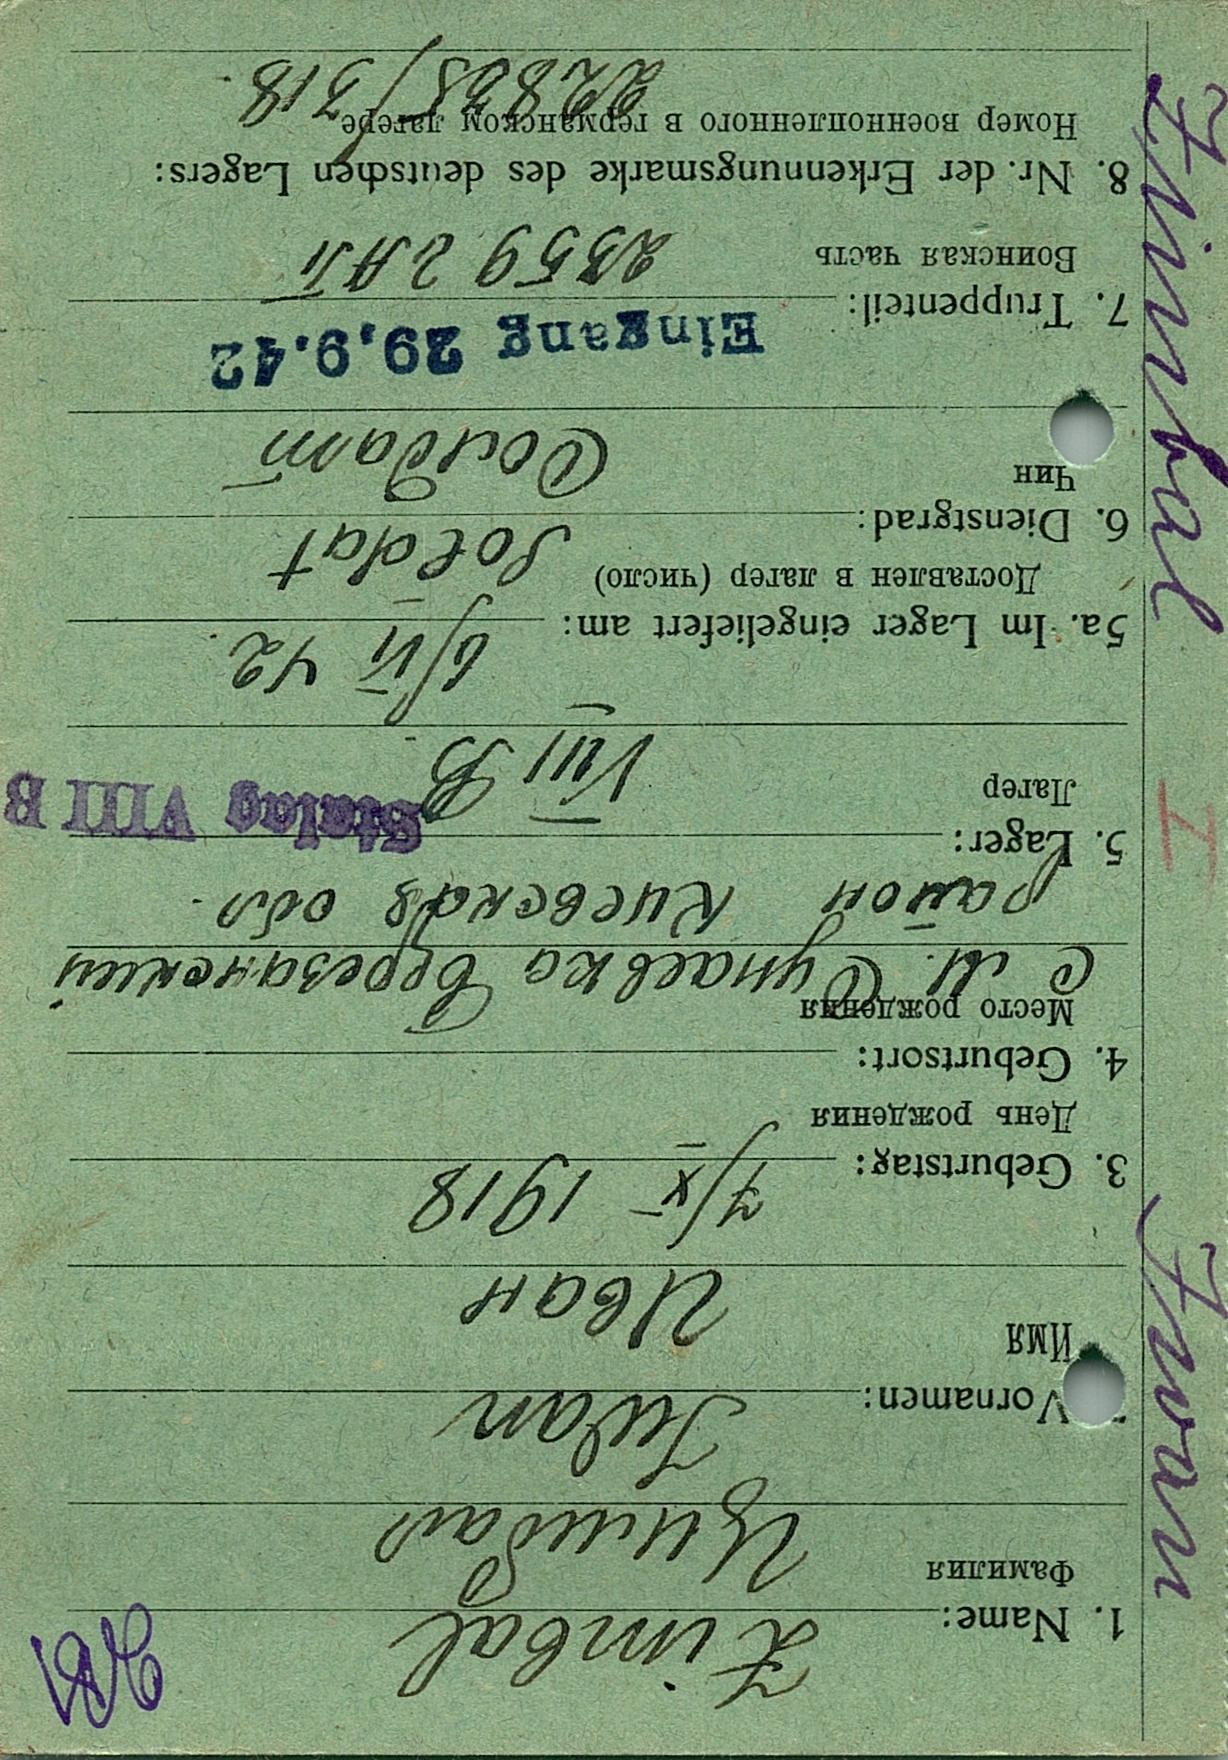 Zimbal Iwan
I
1. Name: Zimbal
Фамилия
Цимбал
Vornamen: Iwan
Имя
Иван
3. Geburtstag:
День рождения
7/X 1918
4. Geburtsort:
Место рождения
с М. Супаевка Березанский
район Киевская обл.
5. Lager:
Лагер
VIII B
Stalag VIII B
5a. Im Lager eingeliefert am: 6/VI 42
Доставлен в лагер (число)
6. Dienstgrad: Soldat
Чин
Солдат
Eingang 29.9.42
7. Truppenteil:
Воинская часть
2359 ГАП
8. Nr. der Erkennungsmarke des deutschen Lagers:
Номер военнопленного в германском лагере
/318